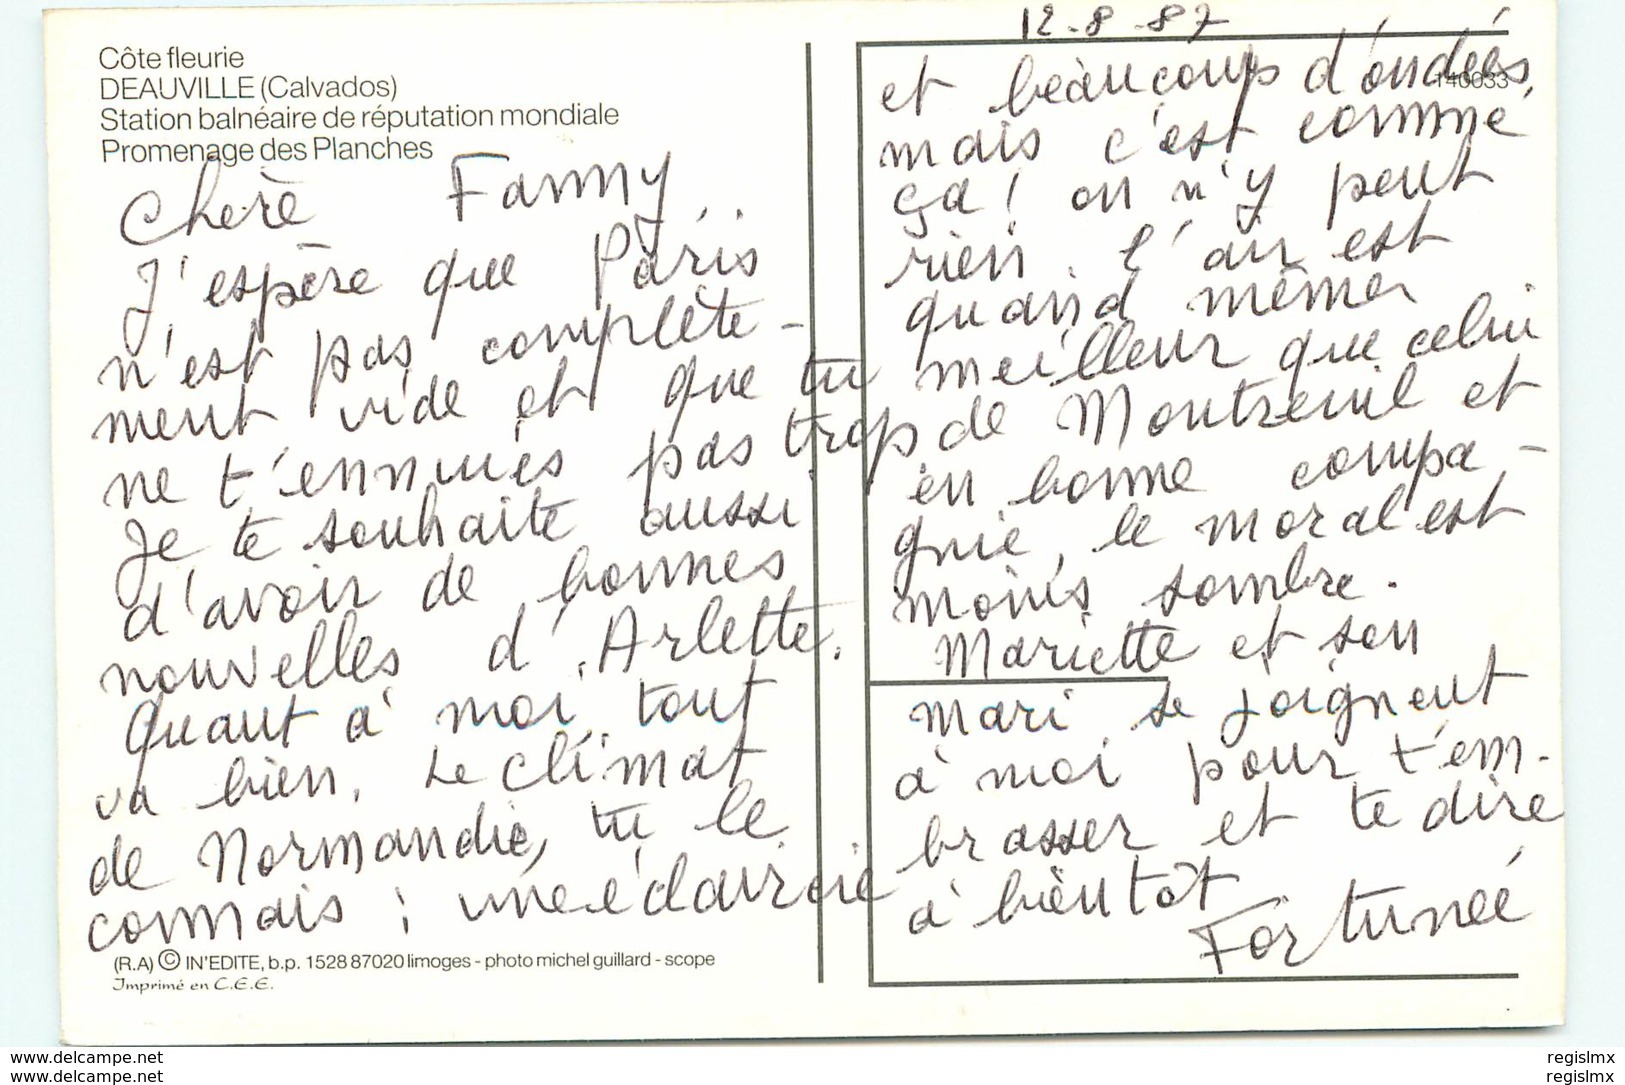 Côte fleurie
DEAUVILLE (Calvados)
Station balnéaire de réputation mondiale
Promenage des Planches
Chère Fanny,
J'espère que Paris
n'est pas complète-
ment vide et que tu
ne t'ennuies pas trop.
Je te souhaite aussi
d'avoir de bonnes
nouvelles d'Arlette.
Quant à moi, tout
va bien. Le climat
de Normandie, tu le
connais ; une éclaircie
(R.A) © IN'EDITE, b.p. 1528 87020 limoges - photo michel guillard - scope
Imprimé en C.E.E.
12-8-87
140033
et beaucoup d'ondées,
mais c'est comme
ça ! on n'y peut
rien. L'air est
quand même
meilleur que celui
de Montreuil et
en bonne compa-
gnie, le moral est
moins sombre.
Mariette et son
mari se joignent
à moi pour t'em-
brasser et te dire
à bientôt
Fortunée
www.delcampe.net
www.delcampe.net
regislmx
regislmx